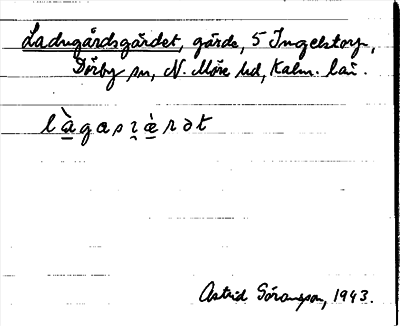 Ladugårdsgärdet, gärde, 5 Ingelstorp,
Dörby sn, N. Möre hd, Kalm. län.
làgasɪæ̀rət
Astrid Göransson, 1943.